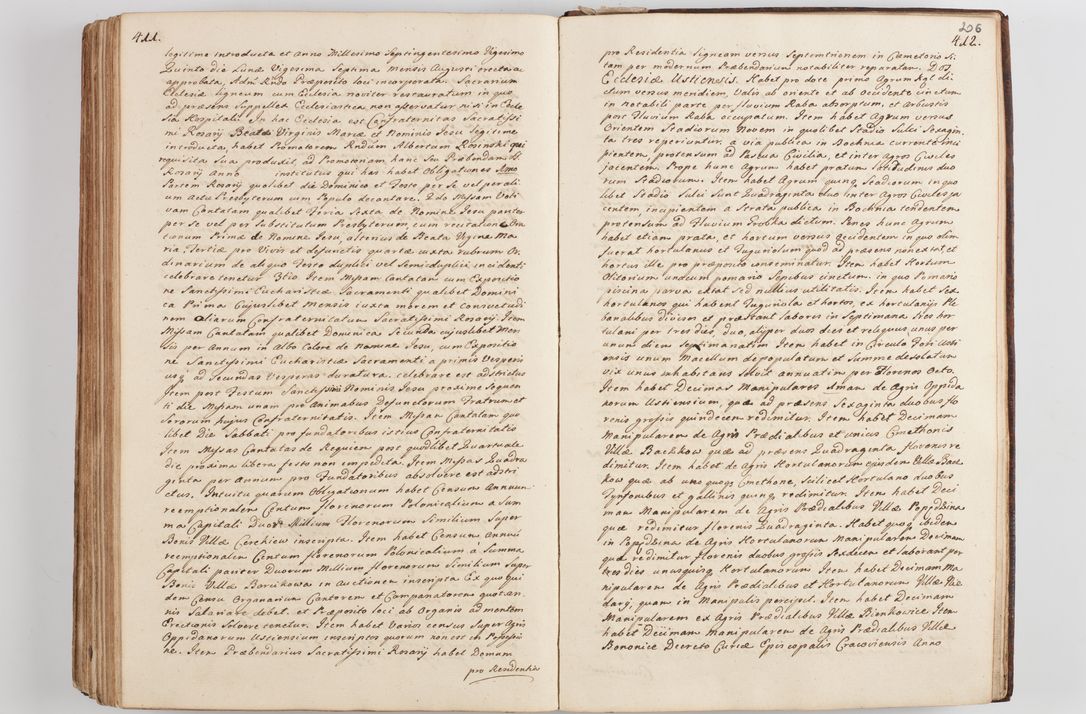 411.
legitime introducta et Anno Millesimo Septingentesimo Vigesimo
Quinto die Lunæ Vigesima Septima Mensis Augusti erecta ac
approbata, Adm: Rndo Præposito loci incorporata. Sacrarium
Ecclesiæ ligneum cum Ecclesia noviter restauratum in quo
ad præsens Suppellex Ecclesiastica non asservatur nisi in Eccle
sia Hospitali. In hac Ecclesia est Confraternitas Sacratissi
mi Rosarij Beatæ Virginis Mariæ et Nominis Jesu legitime
introducta, habet Promotorem Rndum Albertum Rosinski qui
requisita Sua produxit, ad Promotoriam hanc Seu Præbendam SS.
Rosarij Anno institutus qui has habet Obligationes Imo
Partem Rosarij qualibet die Dominico et Festo per Se vel per ali
um actu Presbyterum cum Populo decantare. 2do Missam Voti
vam Cantatam qualibet Feria Sexta de Nomine Jesu pariter
per Se vel per Substitutum Presbyterum, cum recitatione Ora
tionum Prima de Nomine Jesu, alterius de Beata Virgine Ma
ria, Tertiæ pro Vivis et defunctis quartæ iuxta rubrum Or
dinarium de aliquo Festo duplici vel Semiduplici incidenti
celebrare tenetur. 3tio. Item Missam Cantatam cum Expositio
ne Sanctissimi Eucharistiæ Sacramenti qualibet Domini
ca Prima Cujuslibet Mensis iuxta morem et Consuetudi
nem aliarum Confraternitatum Sacratissimi Rosarij. Item
Missam Cantatam qualibet Dominica Secunda cujuslibet Men
sis per Annum in Albo Colore de Nomine Jesu, cum Expositio
ne Sanctissimi Eucharistiæ Sacramenti a primis Vesperis
usq; ad Secundas Vesperas duratura, celebrare est adstrictus
Item post Festum Sanctissimi Nominis Jesu proxime Sequen
ti die Missam unam pro Animabus Defunctorum Fratrum et
Sororum hujus Confraternitatis. Item Missam Cantatam quo
libet die Sabbati pro fundatoribus istius Confraternitatis
Item Missas Cantatas de Requiem post quodlibet Quartuale
die proxima libera festo non impedita. Item Missas Quadra
ginta per Annum pro Fundatoribus absolvere est adstri
ctus. Intuitu quarum Obligationum habet Censum Annuum
reemptionalem Centum florenorum Polonicalium a Sum
ma Capitali Duor: Millium Florenorum Similium Super
Bonis Villæ Cerekiew inscripta. Item habet Censum Annui
reemptionalem Centum florenorum Polonicalium a Summa
Capitali pariter Duorum Millium florenorum Similium Super
Bonis Villæ Borcikowa in Auctionem inscripta Ex quo qui
dem Censu Organarium Cantorem et Companatorem quotan
nis Salariare debet, et Præposito loci ab Organis ad mentem
Erectionis Solvere tenetur. Item habet Varios census Super Agris
Oppidanorum Ustiensium inscriptos quorum non est in Possessio
ne. Item Præbendarius Sacratissimi Rosarij habet Domum
pro Residentia
206
412.
pro Residentia ligneam versus Septemtrionem in Cæmeterio Si
tam per modernum Præbendarium notabiliter reparatam. DOS
Ecclesiæ Ustiensis. Habet pro dote primo Agrum Kąt di
ctum versus meridiem, Vallis ab oriente et ab Occidente cinctum
in notabili parte per fluvium Raba absorptum, et Arbustis
post Fluvium Raba occupatum. Item habet Agrum versus
Orientem Stadiorum Novem in quolibet Stadio Sulci Sexagin
ta tres reperiuntur, a via publica in Bochnia currente inci
pientem, protensum ad Pascua Civilia, et inter Agros Civiles
jacentem. Prope hunc Agrum habet pratum latitudinis duo
rum Stadiorum. Item habet Agrum quinq; Stadiorum in quo
libet Stadio Sulci Sunt Quadraginta duo inter Agros Civiles ja
centem, incipientem a Strata publica in Bochnia tendentem
protensum ad Fluvium Grobka dictum. Penes hunc Agrum
habet etiam prata, et hortum versus Occidentem in quo olim
fuerat hortulanus et Tuguriolum quod ad præsens non extat et
hortus ille pro præposito conseminatur. Item habet Hortum
Olitorium unacum pomario Sepibus cinctum. in quo Pomario
piscina parva extat Sed nullius utilitatis. Item habet Sex
hortulanos qui habent Tuguriola et hortos, ex hortulanijs Ple
banalibus divisos et præstant labores in Septimana Tres hor
tulani per tres dies, duo, aliper duos dies et reliquus unus per
unum diem Septimanatim Item habet in Circulo Fori Usti
ensis unum Macellum depopulatum et Summe desolatum
vix unus inhabitans Solvit annuatim per Florenos Octo.
Item habet Decimas Manipulares Imam de Agris Oppida
norum Ustiensium, quæ ad præsens Sexaginta duobus flo
renis grossis quindecem redimitur. Item habet Decimam
Manipularem de Agris Prædialibus et unius Cmethonis
Villæ Bachkow quæ ad præsens Quadraginta florenis re
dimitur. Item habet de Agris Hortulanorum ejusdem Villæ Bac
kow quæ ab uno quoq; Cmethone, Scilicet Hortulano duobus
Tynfonibus et gallinis quinq; redimitur. Item habet Deci
mam Manipularem de Agris Prædialibus Villæ Popędzina
quæ redimitur florenis Quadraginta. Habet quoq; ibidem
in Popędzina de Agris Hortulanorum Manipularem Decimam
quæ redimitur florenis duobus grossis Sexdecem et laborant per
tres dies unusquisq; Hortulanorum Item habet Decimam Ma
nipularem de Agris Prædialibus et Hortulanorum Villæ Nie
dary, quam in Manipulis percipit. Item habet Decimam
Manipularem ex Agris Prædialibus Villæ Bienkowice Item
habet Decimam Manipularem de Agris Prædialibus Villæ
Bononice Decreto Curiæ Episcopalis Cracoviensis Anno